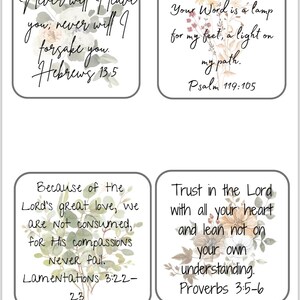 Never will I leave
you, never will I
forsake you.
Hebrews 13:5
Your Word is a lamp
for my feet, a light on
my path.
Psalm 119:105
Because of the
Lord's great love, we
are not consumed,
for His compassions
never fail.
Lamentations 3:22-
23
Trust in the Lord
with all your heart
and lean not on
your own
understanding.
Proverbs 3:5-6